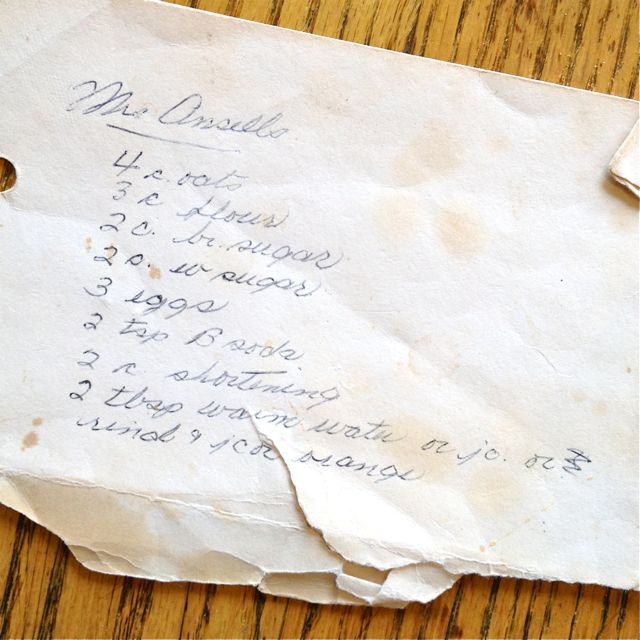 Mrs Ansells
4 c oats
3 c flour
2 c. br. sugar
2 c. w sugar
3 eggs
2 tsp B soda
2 c shortening
2 tbsp warm water or jc. or
rind & jc of orange